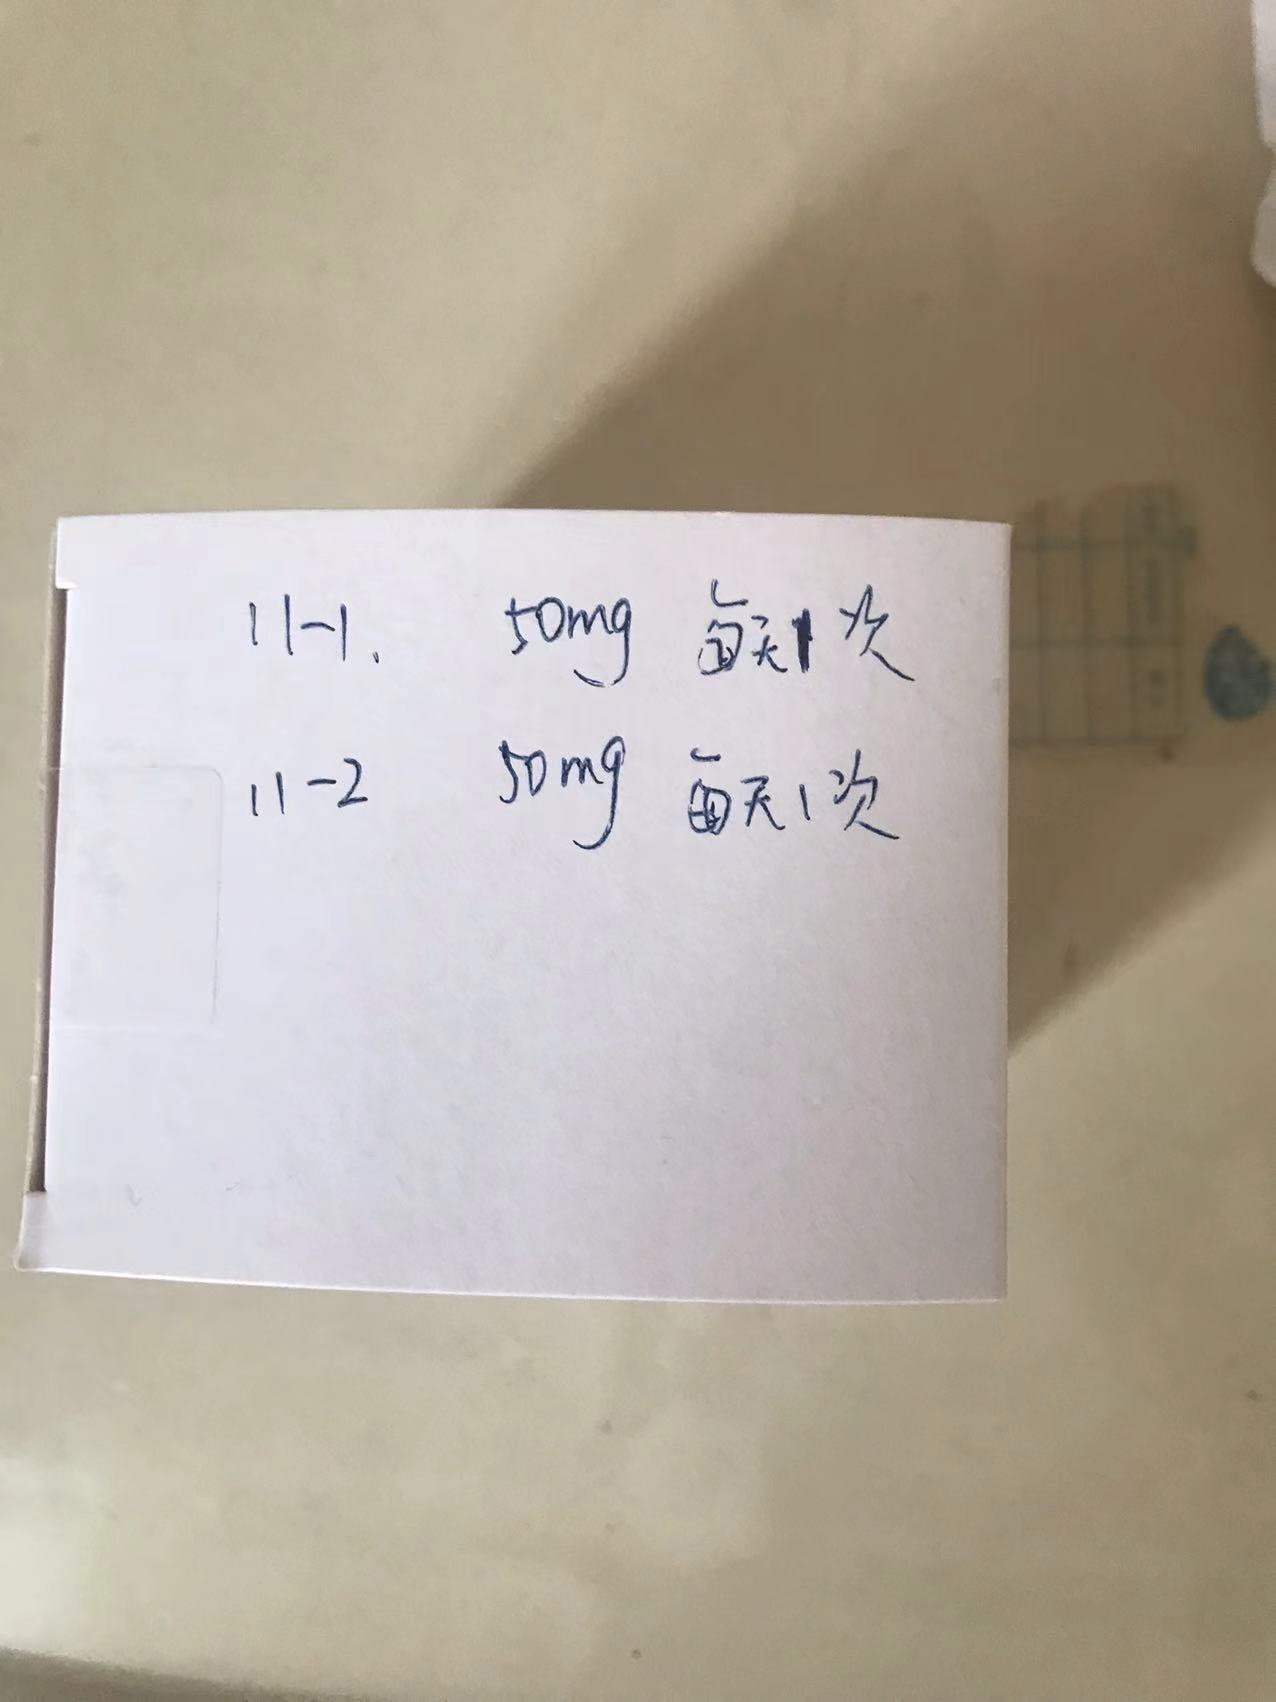 11-1. 50mg 每天1次
11-2 50mg 每天1次